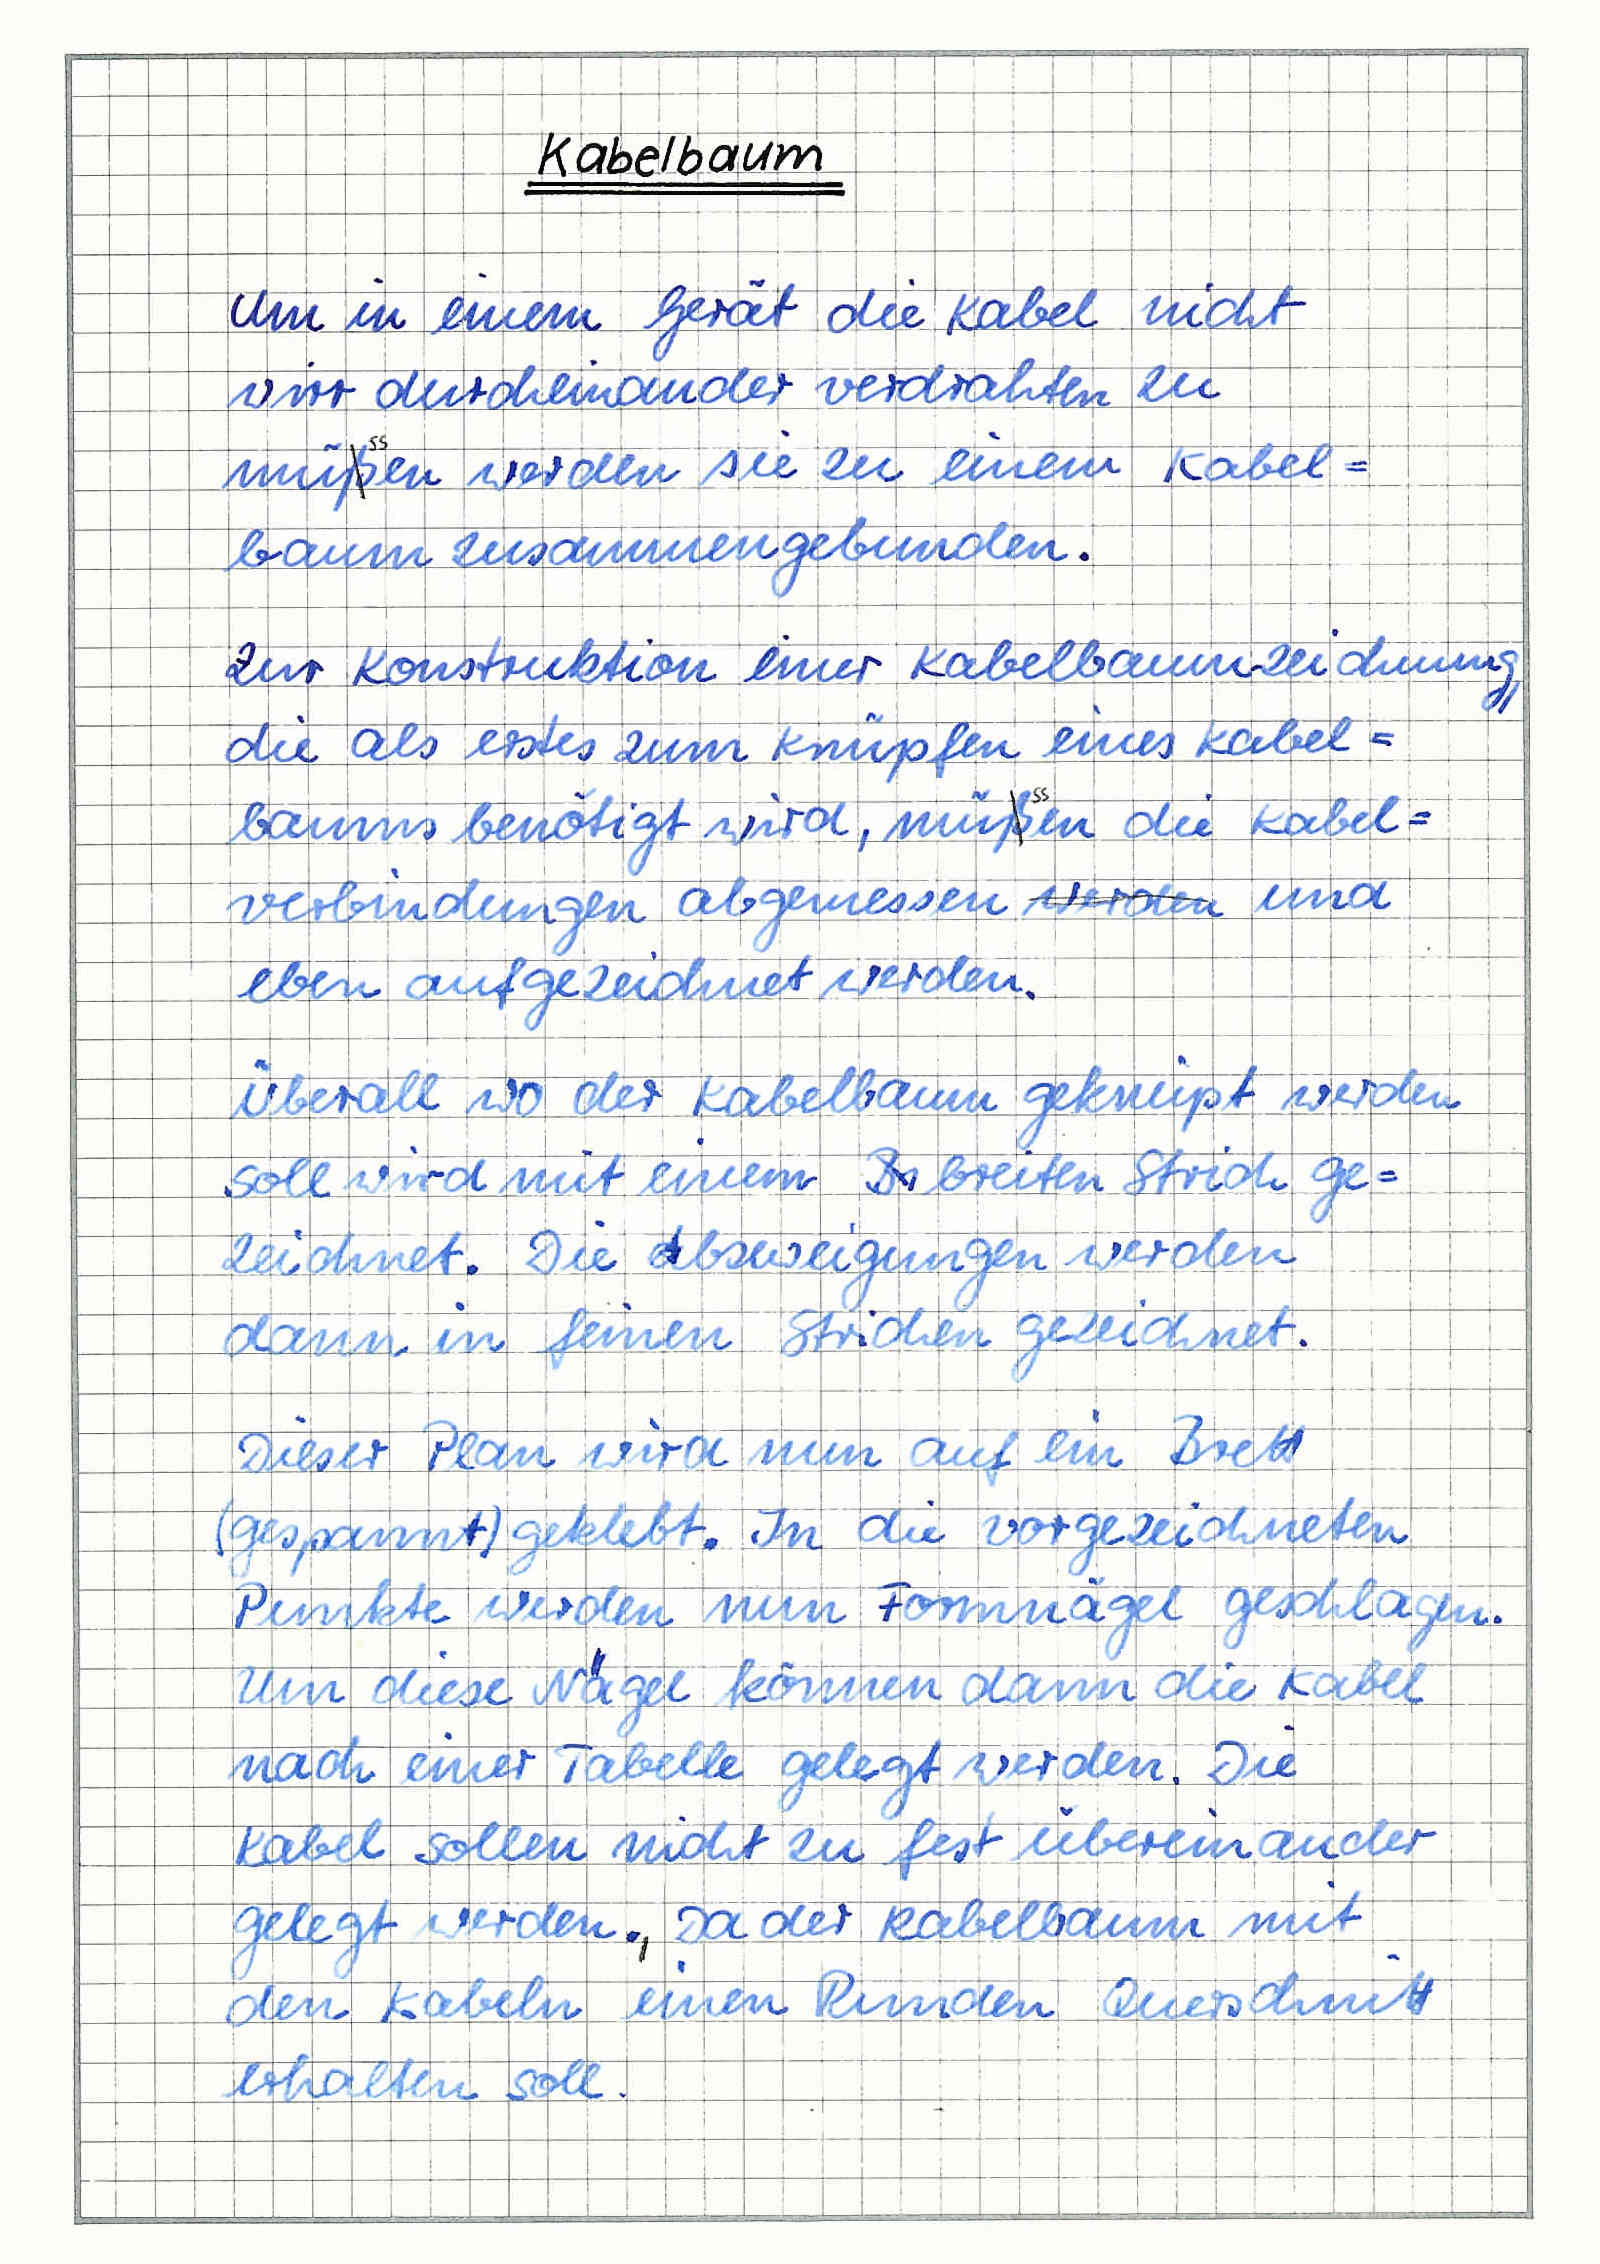 Kabelbaum
Um in einem Gerät die Kabel nicht
wirr durcheinander verdrahten zu
müssen werden sie zu einem Kabel=
baum zusammengebunden.
Zur Konstruktion einer Kabelbaumzeichnung,
die als erstes zum Knüpfen eines Kabel=
baums benötigt wird, müssen die Kabel=
verbindungen abgemessen werden und
eben aufgezeichnet werden.
Überall wo der Kabelbaum geknüpt werden
soll wird mit einem breiten Strich ge=
zeichnet. Die Abzweigungen werden
dann in feinen Strichen gezeichnet.
Dieser Plan wird nun auf ein Brett
(gespannt) geklebt. In die vorgezeichneten
Punkte werden nun Formnägel geschlagen.
Um diese Nägel können dann die Kabel
nach einer Tabelle gelegt werden. Die
Kabel sollen nicht zu fest übereinander
gelegt werden., Da der Kabelbaum mit
den Kabeln einen Runden Querschnitt
erhalten soll.